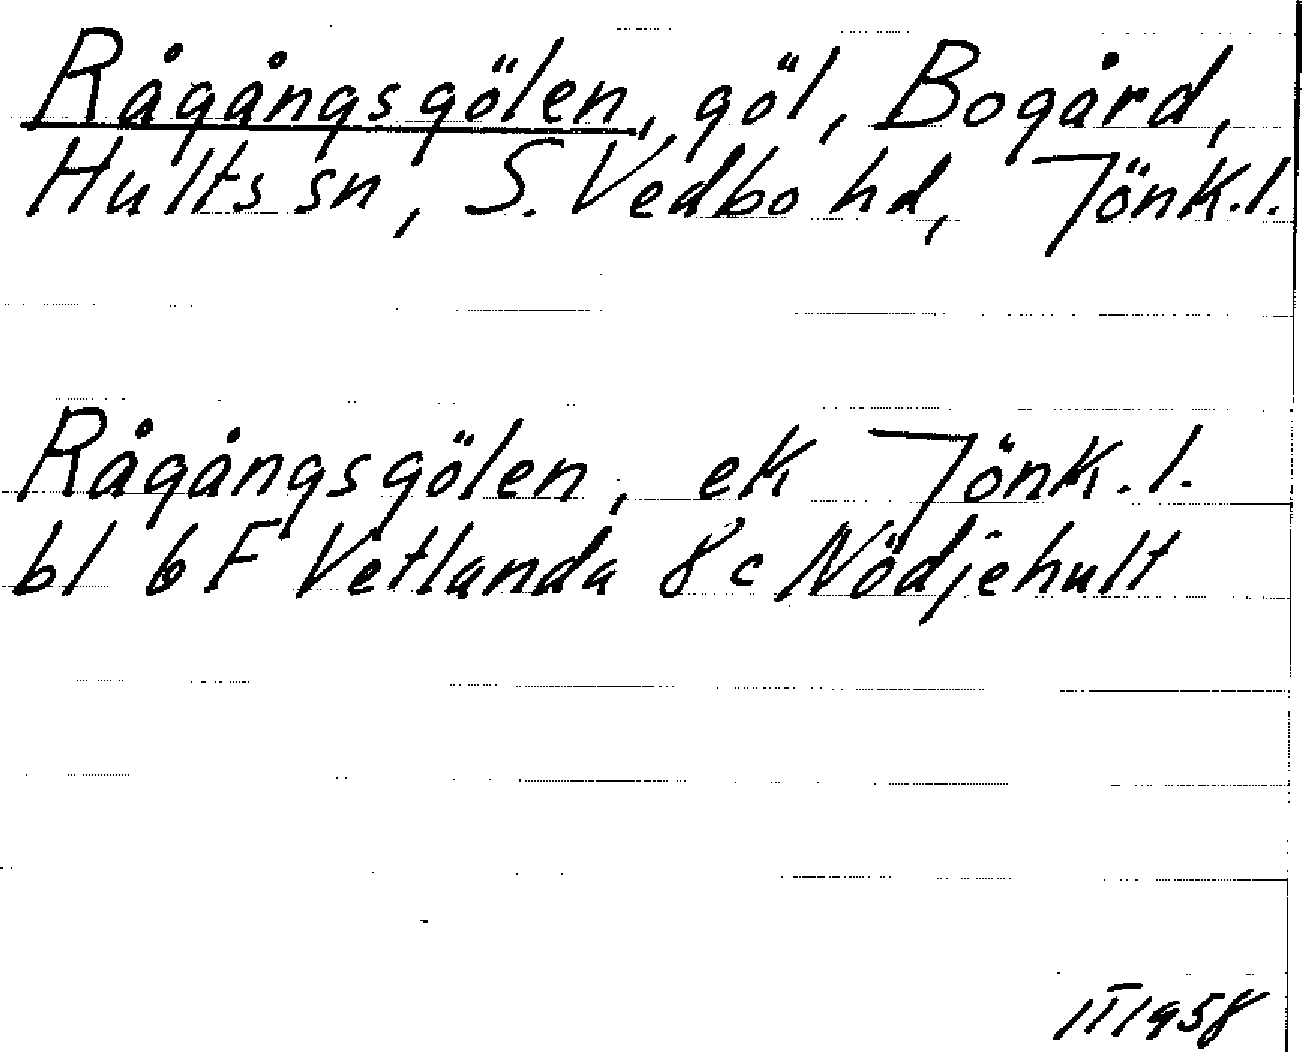 Rågångsgölen, göl, Bogård,
Hults sn, S. Vedbo hd, Jönk. l.
Rågångsgölen, ek Jönk. l.
bl 6 F Vetlanda 8 c Nödjehult
1958